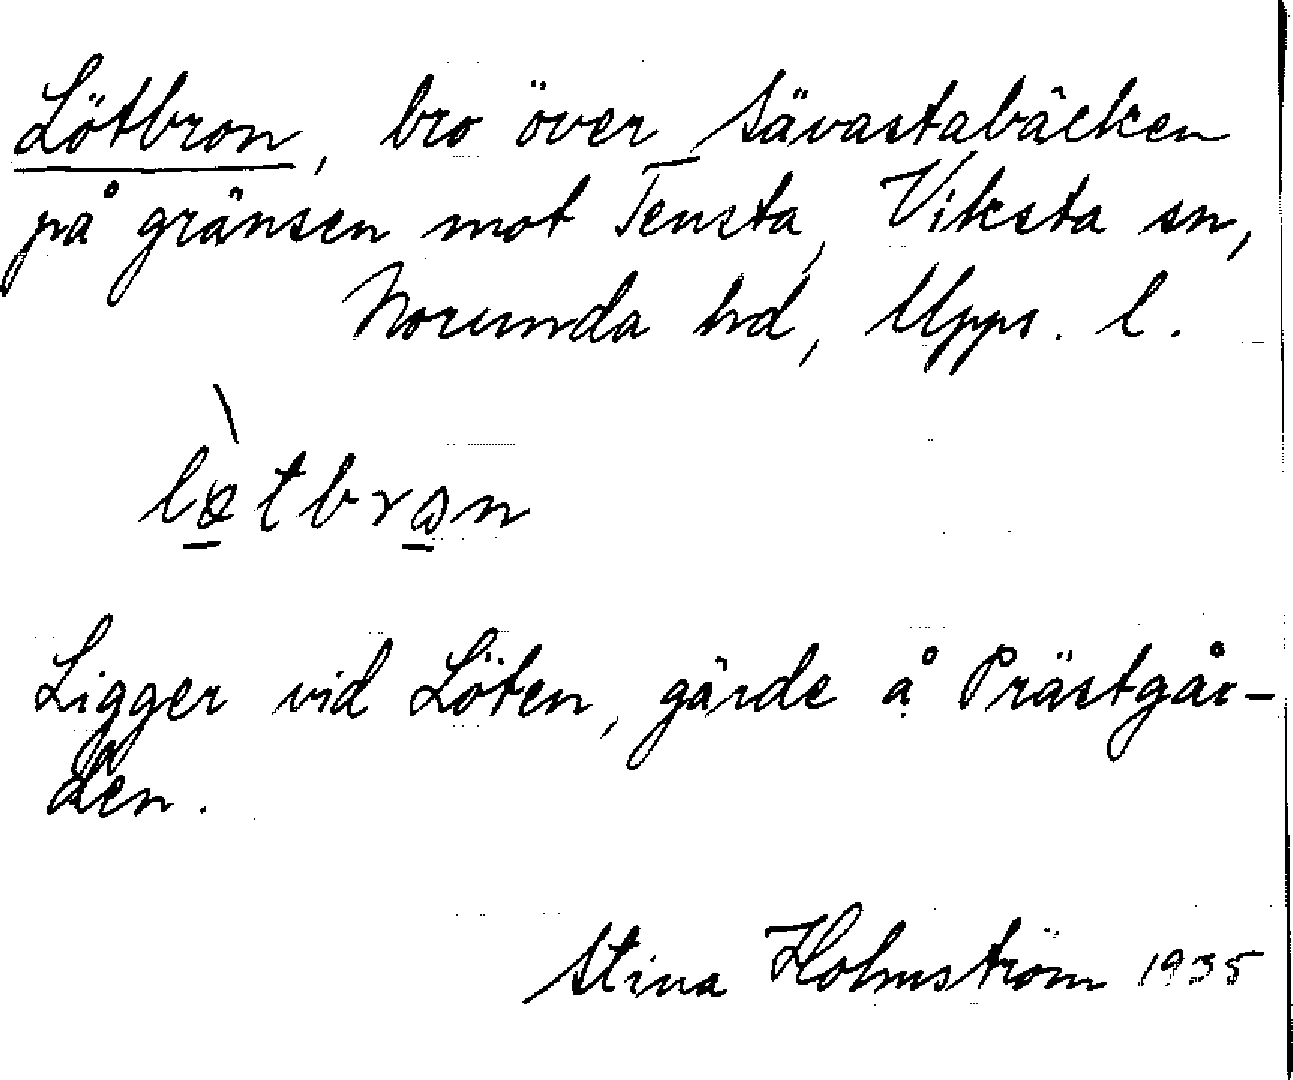 Lötbron, bro över Sävastabäcken
på gränsen mot Tensta, Viksta sn,
Norunda hd, Upps. l.
lø̀tbrωn
Ligger vid Löten, gärde å Prästgår-
den.
Stina Holmström 1935